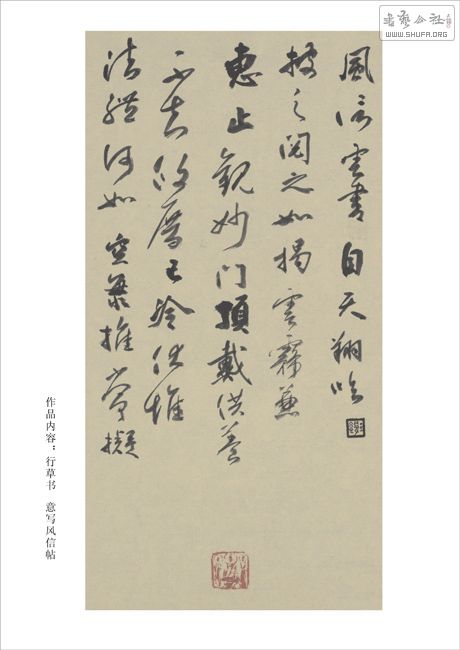 書藝公社
WWW.SHUFA.ORG
風信雲書自天翔臨
披之閱之如揭雲霧兼
惠止觀妙门頂戴供養
不知攸厝已冷伏惟
法體何如空海推常擬
作品内容：行草书 意写风信帖